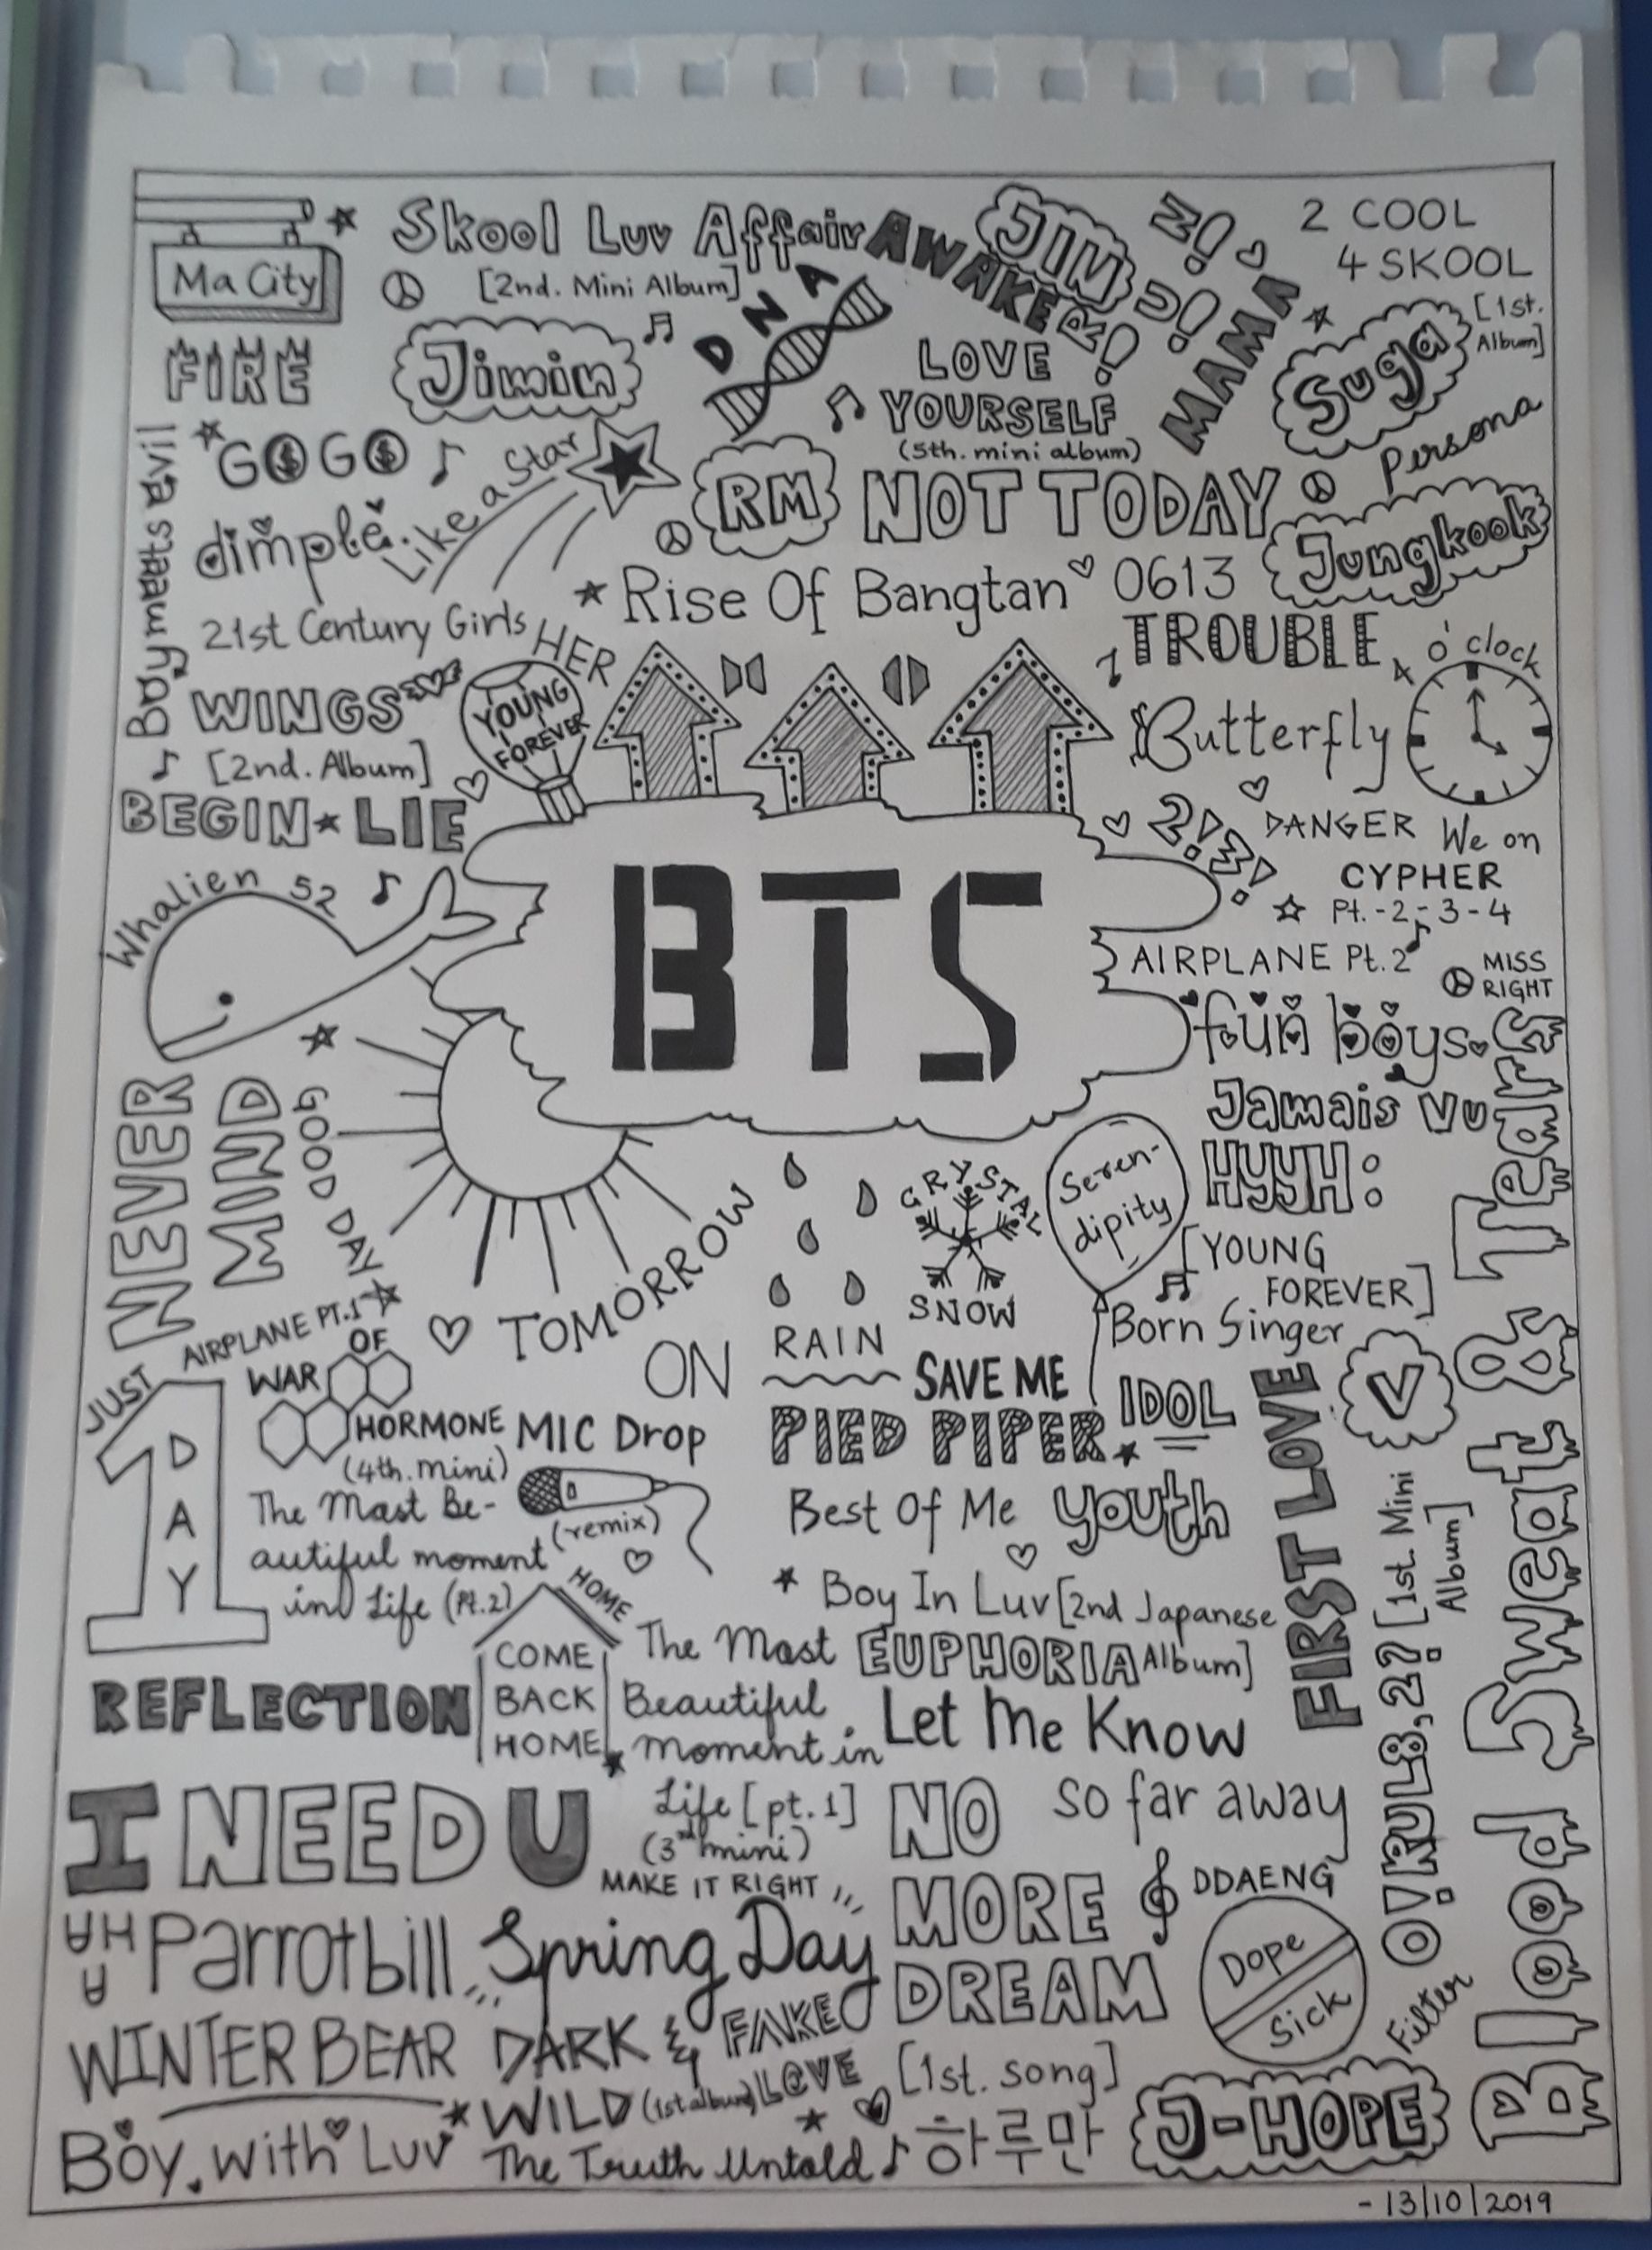 Ma City
Skool Luv Affair
[2nd. Mini Album]
AWAKE
JIN
R!
U!
N!
2 COOL
4 SKOOL
[1st.
Album]
FIRE
Jimin
DNA
LOVE
YOURSELF
(5th. mini album)
MAMA
Suga
Persona
GO GO
Like a Star
RM
NOT TODAY
Jungkook
dimple
Boy meets evil
Rise Of Bangtan
0613
21st Century Girls
HER
TROUBLE
4 o'clock
WINGS
[2nd. Album]
YOUNG
FOREVER
Butterfly
BEGIN
LIE
2!3!
DANGER
We on
CYPHER
Pt.-2-3-4
Whalien 52
BTS
AIRPLANE Pt.2
MISS
RIGHT
fun boys
Jamais Vu
NEVER
MIND
GOOD DAY
TOMORROW
RAIN
CRYSTAL
SNOW
Seren-
dipity
HYYH:
[YOUNG
FOREVER]
Born Singer
AIRPLANE PT.1
JUST
1
DAY
WAR
OF
HORMONE
ON
SAVE ME
IDOL
V
MIC Drop
(remix)
PIED PIPER
(4th. mini)
The Most Be-
autiful moment
in Life (Pt.2)
Best Of Me
Youth
FIRST LOVE
HOME
COME
BACK
HOME
Boy In Luv [2nd Japanese
Album]
EUPHORIA
REFLECTION
The Most
Beautiful
moment in
Life [pt.1]
(3rd mini)
Let Me Know
O!RUL8,2? [1st. Mini
Album]
Blood Sweat & Tears
I NEED U
MAKE IT RIGHT
NO
MORE
DREAM
[1st. song]
so far away
DDAENG
Parrotbill
Spring Day
Dope
Sick
Filter
WINTER BEAR
DARK &
WILD (1st album)
FAKE
LOVE
Boy with Luv
The Truth Untold
하루만
J-HOPE
-13/10/2019